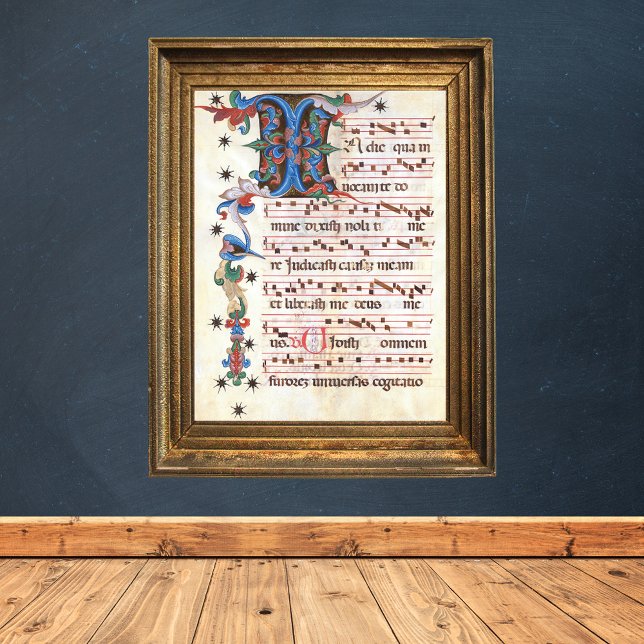 In die qua in
uocaui te do
mine dixisti noli ti me
re Iudicasti causaz meam
et liberasti me deus me
us. V. Vidisti omnem
furorez uniuersas cogitatio